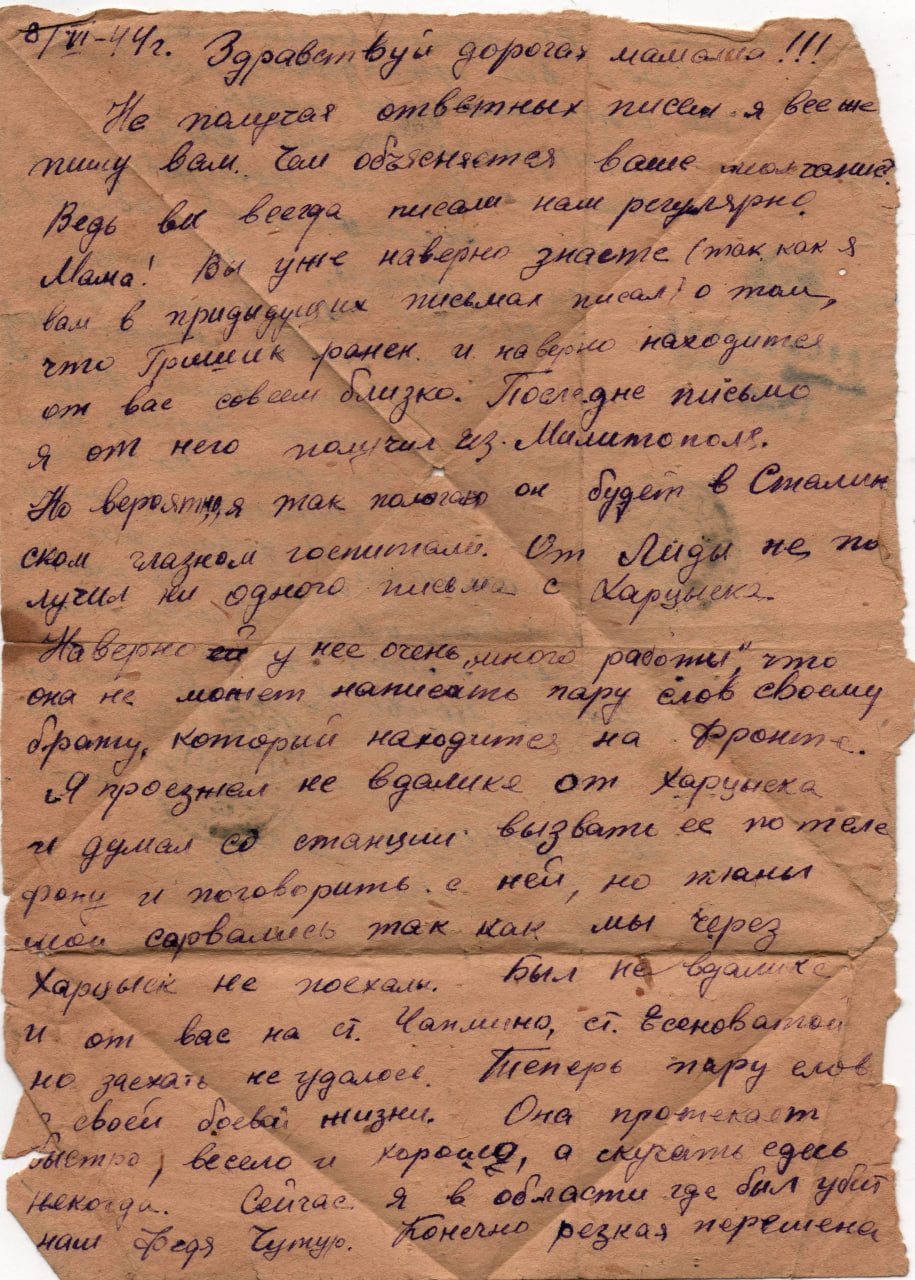 8/VI-44г. Здравствуй дорогая мамаша!!!
Не получая ответных писем я все же
пишу вам. Чем объясняется ваше молчание?
Ведь вы всегда писали нам регулярно.
Мама! Вы уже наверно знаете (так как я
вам в придыдущих письмах писал) о том,
что Гришик ранен и наверно находится
от вас совсем близко. Последне письмо
я от него получил из Милитополя.
Но вероятно, я так полагаю он будет в Сталин
ском глазном госпитале. От Лиды не по
лучил ни одного письма с Харцыска.
Наверно у нее очень „много работы", что
она не может написать пару слов своему
брату, который находится на Фронте.
Я проезжал не вдалике от Харцыска
и думал со станции вызвать ее по теле
фону и поговорить с ней, но планы
мои сорвались так как мы через
Харцыск не поехали. Был не вдалике
и от вас на ст. Чаплино, ст. Есеноватой
но заехать не удалось. Теперь пару слов
о своей боевой жизни. Она протекает
быстро, весело и хорошо, а скучать сдесь
некогда. Сейчас я в области где был убит
наш Федя Чутур. Конечно резкая перемена